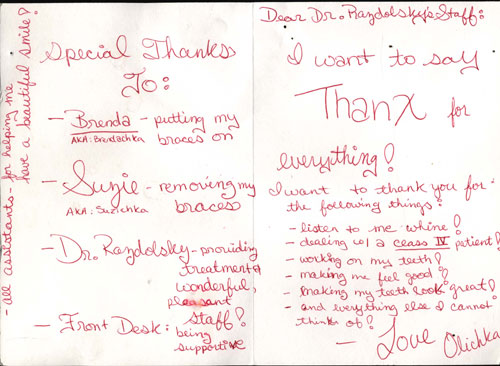 Special Thanks
To:
- Brenda - putting my
AKA: Brendachka braces on
- Suzie - removing my
AKA: Suzichka braces
- Dr. Razdolsky - providing
treatment &
wonderful,
pleasant
staff!
- Front Desk: being
supportive
- all assistants - for helping me
have a beautiful smile!
Dear Dr. Razdolsky's Staff:
I want to say
Thanx for
everything!
I want to thank you for
the following things:
- listen to me whine!
- dealing w/ a class IV patient!
- working on my teeth!
- making me feel good!
- making my teeth look great!
- and everything else I cannot
think of!
- Love Olichka